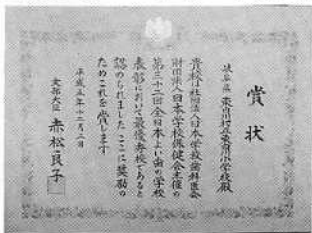 賞状
岐阜県 東白川村立東白川小学校殿
貴校は社団法人日本学校歯科医会
財団法人日本学校保健会主催の
第三十二回全日本よい歯の学校
表彰において最優秀校であると
認められました ここに奨励の
ためこれを賞します
平成五年十二月二日
文部大臣 赤松良子